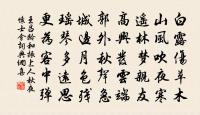 白露傷草木
山風吹夜寒
遥林夢親友
高興發雲端
郭外秋聲急
城邊月色殘
瑤琴多遠思
更為客中彈
王昌齡和振上人秋夜
懷士會詞典網集